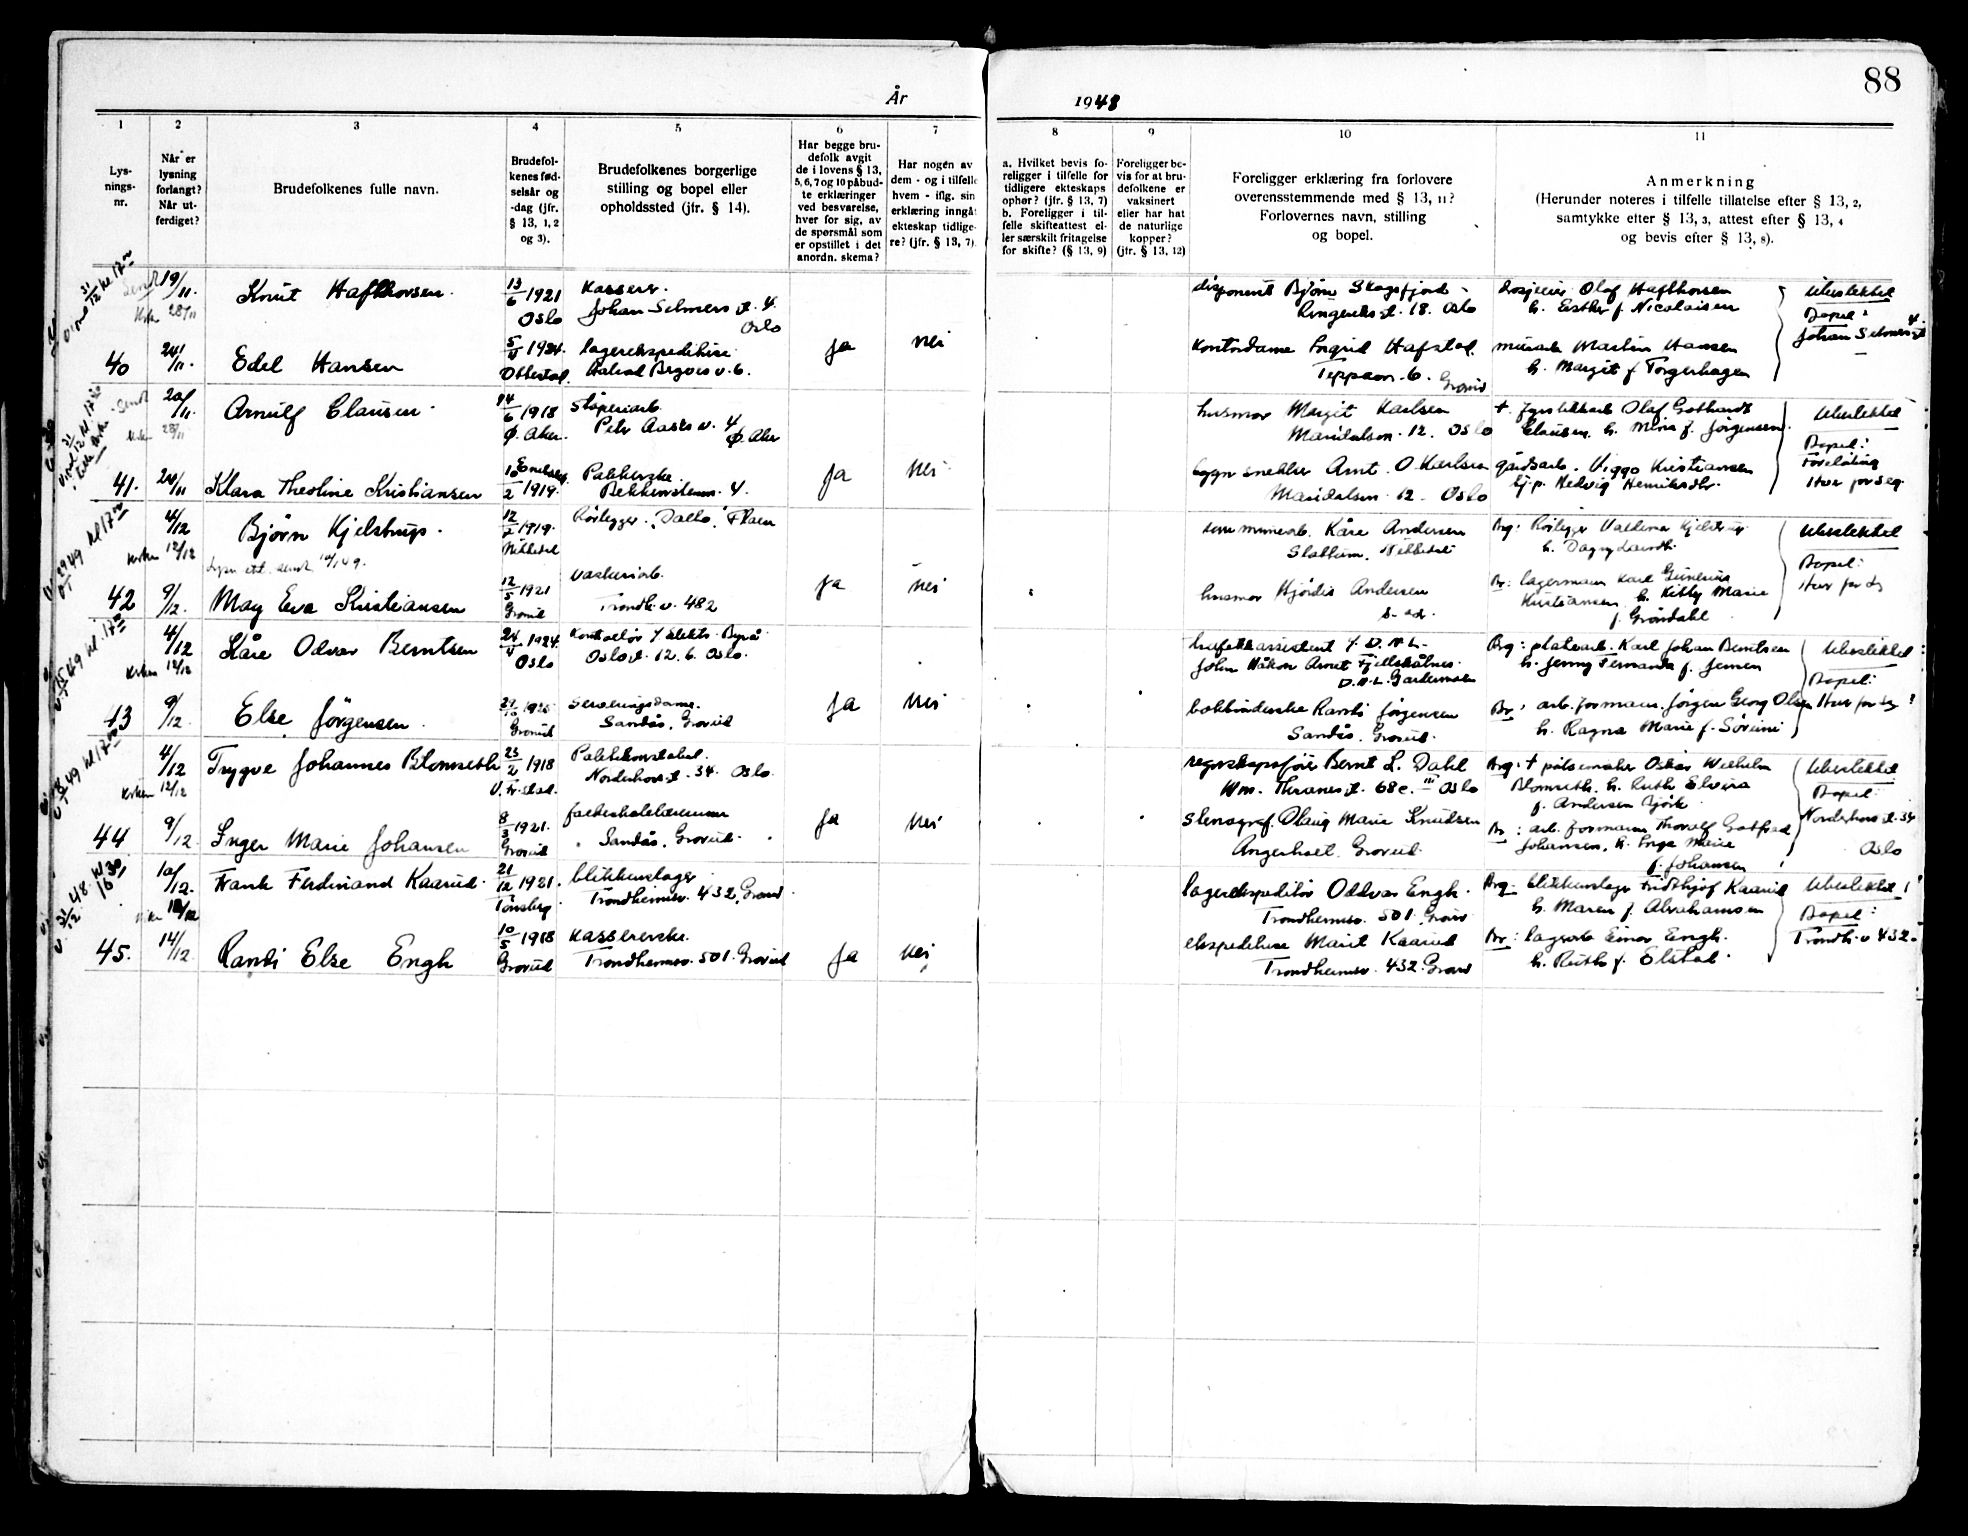 88
År 1948
1 2 3 4 5 6 7 8 9 10 11
Lys-
nings-
nr.
Når er
lysning
forlangt?
Når ut-
ferdiget?
Brudefolkenes fulle navn.
Brudefol-
kenes fød-
selsår og
-dag (jfr.
§ 13, 1, 2
og 3).
Brudefolkenes borgerlige
stilling og bopel eller
opholdssted (jfr. § 14).
Har begge bru-
defolk avgit
de i lovens § 13,
5, 6, 7 og 10 påbud-
te erklæringer
ved besvarelse,
hver for sig, av
de spørsmål som
er opstillet i det
anordn. skema?
Har nogen av
dem - og i tilfelle
hvem - iflg. sin
erklæring inngåt
ekteskap tidlige-
re? (jfr. § 13, 7).
a. Hvilket bevis fo-
religger i tilfelle for
tidligere ekteskaps
ophør? (jfr. § 13, 7)
b. Foreligger i til-
felle skifteattest el-
ler særskilt fritagelse
for skifte? (§ 13, 9)
Foreligger be-
vis for at bru-
defolkene er
vaksinert
eller har hat
de naturlige
kopper?
(jfr. § 13, 12)
Foreligger erklæring fra forlovere
overensstemmende med § 13, 11?
Forlovernes navn, stilling
og bopel.
Anmerkning
(Herunder noteres i tilfelle tillatelse efter § 13, 2,
samtykke efter § 13, 3, attest efter § 13, 4
og bevis efter § 13, 8).
19/11
28/11
Knut Hafthorsen
13/6 1921
Oslo
Kasserer
Johan Selmers gt. 4
Oslo
disponent Bjørn Skagsfjord
Ringeriks gt. 18. Oslo
Olaf Hafthorsen
h. Esther f. Nicolaisen
Ubeslektet
Bopel:
Johan Selmers gt 4.
40
24/11
Edel Hansen
5/4 1924
lagerekspeditrise
v. 6.
ja
nei
kontordame Ingrid Hafstad
6. Grorud
Martin Hansen
h. Margit f. Torgerhagen
20/11
28/11
Arnulf Clausen
14/6 1918
Ø. Aker
Støperiarb.
Petr Aases v. 4
Ø. Aker
husmor Margit Karlsen
Maridalsvn. 12. Oslo
Olaf Gothardt
Clausen h. Mina f. Jørgensen
Ubeslektet
Bopel:
Foreløbig
Hver for seg
41.
24/11
Klara Theoline Kristiansen
10/2 1919
Pakkerske
4.
ja
nei
bygn. snekker Arnt O. Karlsen
Maridalsvn. 12. Oslo
gårdsarb. Viggo Kristiansen
Hedvig
4/12
kirken 12/12
Bjørn Kjelstrup
12/2 1919
Nittedal
Rørlegger
Kåre Andersen
Slattum. Nittedal
Brg: Rørlegger Kjelstrup
h. Dagny
Ubeslektet
Bopel:
Hver for seg
42
9/12
May Eva Kristiansen
12/5 1921
Grorud
Vaskeriarb.
Trondh. v. 482
ja
nei
husmor Hjørdis Andersen
Br: lagermann Karl
Kristiansen h. Kitty Marie
f. Grøndahl
4/12
kirken 12/12
Kåre Odvar Berntsen
24/4 1924
Oslo
Kontrollør
Oslo gt. 12. 6. Oslo
D.N.L.
John Håkon Arnet
D.N.L. Gardermoen
Brg: platearb. Karl Johan Berntsen
h. Jenny Fernanda f. Jensen
Ubeslektet
Bopel:
Hver for seg
43
9/12
Else Jørgensen
Grorud
Serveringsdame
Sandås, Grorud
ja
nei
bokbinderske Randi Jørgensen
Sandås, Grorud
Br: arb. formann Jørgen Georg Olsen
h. Ragna Marie f.
4/12
kirken 12/12
Trygve Johannes Blomseth
23/2 1918
Politikonstabel
Norderhovs gt. 34. Oslo
regnskapsfører Bernt L. Dahl
Wm. Thranes gt. 68c. III Oslo
Brg: † pølsemaker Oskar Wilhelm
Blomseth. h. Ruth Elvira
f. Andersen Björk
Ubeslektet
Bopel:
Norderhovs gt. 34
Oslo
44
9/12
Inger Marie Johansen
8/3 1921
Grorud
Sandås, Grorud
ja
nei
stenograf Olaug Marie Knudsen
Grorud
Br: arb. formann Thoralf Gotfred
Johansen, h. Inga Marie
f. Johansen
10/12
Frank Ferdinand Kaarud
21/12 1921
Tønsberg
blikkenslager
Trondheimsv. 432, Grorud
lagerekspeditør Oddvar Engh
Trondheimsv. 501 Grorud
Brg: blikkenslager Fridthjof Kaarud
h. Maren f. Abrahamsen
Ubeslektet
Bopel:
Trondh. v 432
45.
14/12
Randi Else Engh
10/5 1918
Grorud
Kassererske
Trondheimsv. 501. Grorud
ja
nei
ekspeditrise Marit Kaarud
Trondheimsv. 432. Grorud
Br: lagerarb Einar Engh
h. Ruth f. Elstad